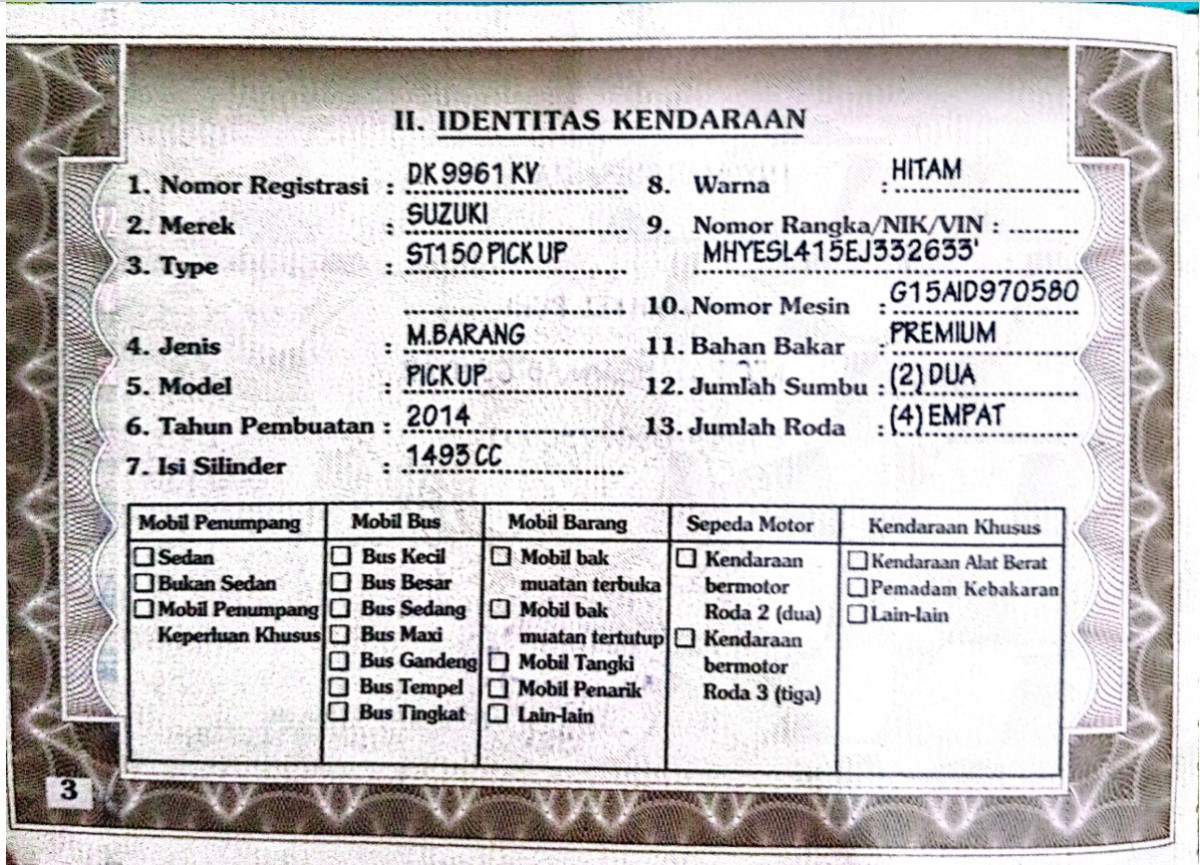 II. IDENTITAS KENDARAAN
1. Nomor Registrasi : DK 9961 KY
2. Merek : SUZUKI
3. Type : ST150 PICK UP
4. Jenis : M.BARANG
5. Model : PICK UP
6. Tahun Pembuatan : 2014
7. Isi Silinder : 1493 CC
8. Warna : HITAM
9. Nomor Rangka/NIK/VIN : .........
MHYESL415EJ332633'
10. Nomor Mesin : G15AID970580
11. Bahan Bakar : PREMIUM
12. Jumlah Sumbu : (2) DUA
13. Jumlah Roda : (4) EMPAT
Mobil Penumpang
Sedan
Bukan Sedan
Mobil Penumpang
Keperluan Khusus
Mobil Bus
Bus Kecil
Bus Besar
Bus Sedang
Bus Maxi
Bus Gandeng
Bus Tempel
Bus Tingkat
Mobil Barang
Mobil bak
muatan terbuka
Mobil bak
muatan tertutup
Mobil Tangki
Mobil Penarik
Lain-lain
Sepeda Motor
Kendaraan
bermotor
Roda 2 (dua)
Kendaraan
bermotor
Roda 3 (tiga)
Kendaraan Khusus
Kendaraan Alat Berat
Pemadam Kebakaran
Lain-lain
3